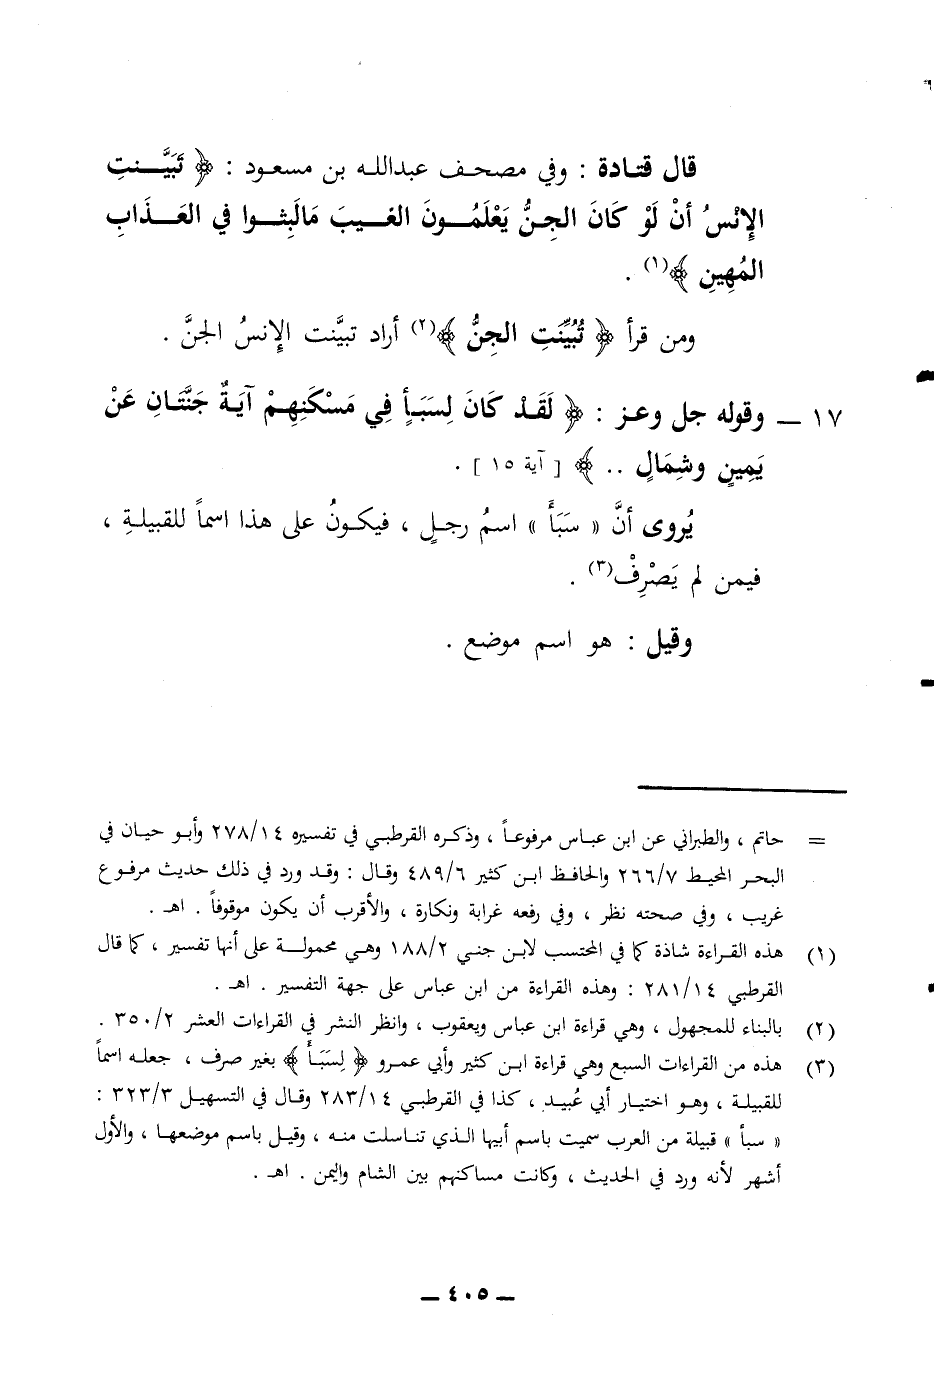 قال قتادة : وفي مصحف عبدالله بن مسعود : ﴿ تَبَيَّنتِ
الإِنْسُ أنْ لَوْ كَانَ الجِنُّ يَعْلَمُونَ الغيبَ مَالَبِثُوا في العَذَابِ
المُهِينِ ﴾(١) .
ومن قرأ ﴿ تُبُيِّنَتِ الجِنُّ ﴾(٢) أراد تبيَّنت الإِنسُ الجنَّ .
١٧ ــ وقوله جل وعز : ﴿ لَقَدْ كَانَ لِسَبَأٍ فِي مَسْكَنِهِمْ آيَةٌ جَنَّتَانِ عَنْ
يَمِينٍ وشِمَالٍ .. ﴾ [ آية ١٥ ] .
يُروى أنَّ « سَبَأَ » اسمُ رجلٍ ، فيكونُ على هذا اسماً للقبيلةِ ،
فيمن لم يَصْرِفْ(٣) .
وقيل : هو اسم موضع .
= حاتم ، والطبراني عن ابن عباس مرفوعاً ، وذكره القرطبي في تفسيره ٢٧٨/١٤ وأبو حيان في
البحر المحيط ٢٦٦/٧ والحافظ ابن كثير ٤٨٩/٦ وقال : وقد ورد في ذلك حديث مرفوع
غريب ، وفي صحته نظر ، وفي رفعه غرابة ونكارة ، والأقرب أن يكون موقوفاً . اهـ .
(١) هذه القراءة شاذة كما في المحتسب لابن جني ١٨٨/٢ وهي محمولة على أنها تفسير ، كما قال
القرطبي ٢٨١/١٤ : وهذه القراءة من ابن عباس على جهة التفسير . اهـ .
(٢) بالبناء للمجهول ، وهي قراءة ابن عباس ويعقوب ، وانظر النشر في القراءات العشر ٣٥٠/٢ .
(٣) هذه من القراءات السبع وهي قراءة ابن كثير وأبي عمرو ﴿ لِسَبَأَ ﴾ بغير صرف ، جعله اسماً
للقبيلة ، وهو اختيار أبي عُبيد ، كذا في القرطبي ٢٨٣/١٤ وقال في التسهيل ٣٢٣/٣ :
« سبأ » قبيلة من العرب سميت باسم أبيها الذي تناسلت منه ، وقيل باسم موضعها ، والأول
أشهر لأنه ورد في الحديث ، وكانت مساكنهم بين الشام واليمن . اهـ .
ــ ٤٠٥ ــ